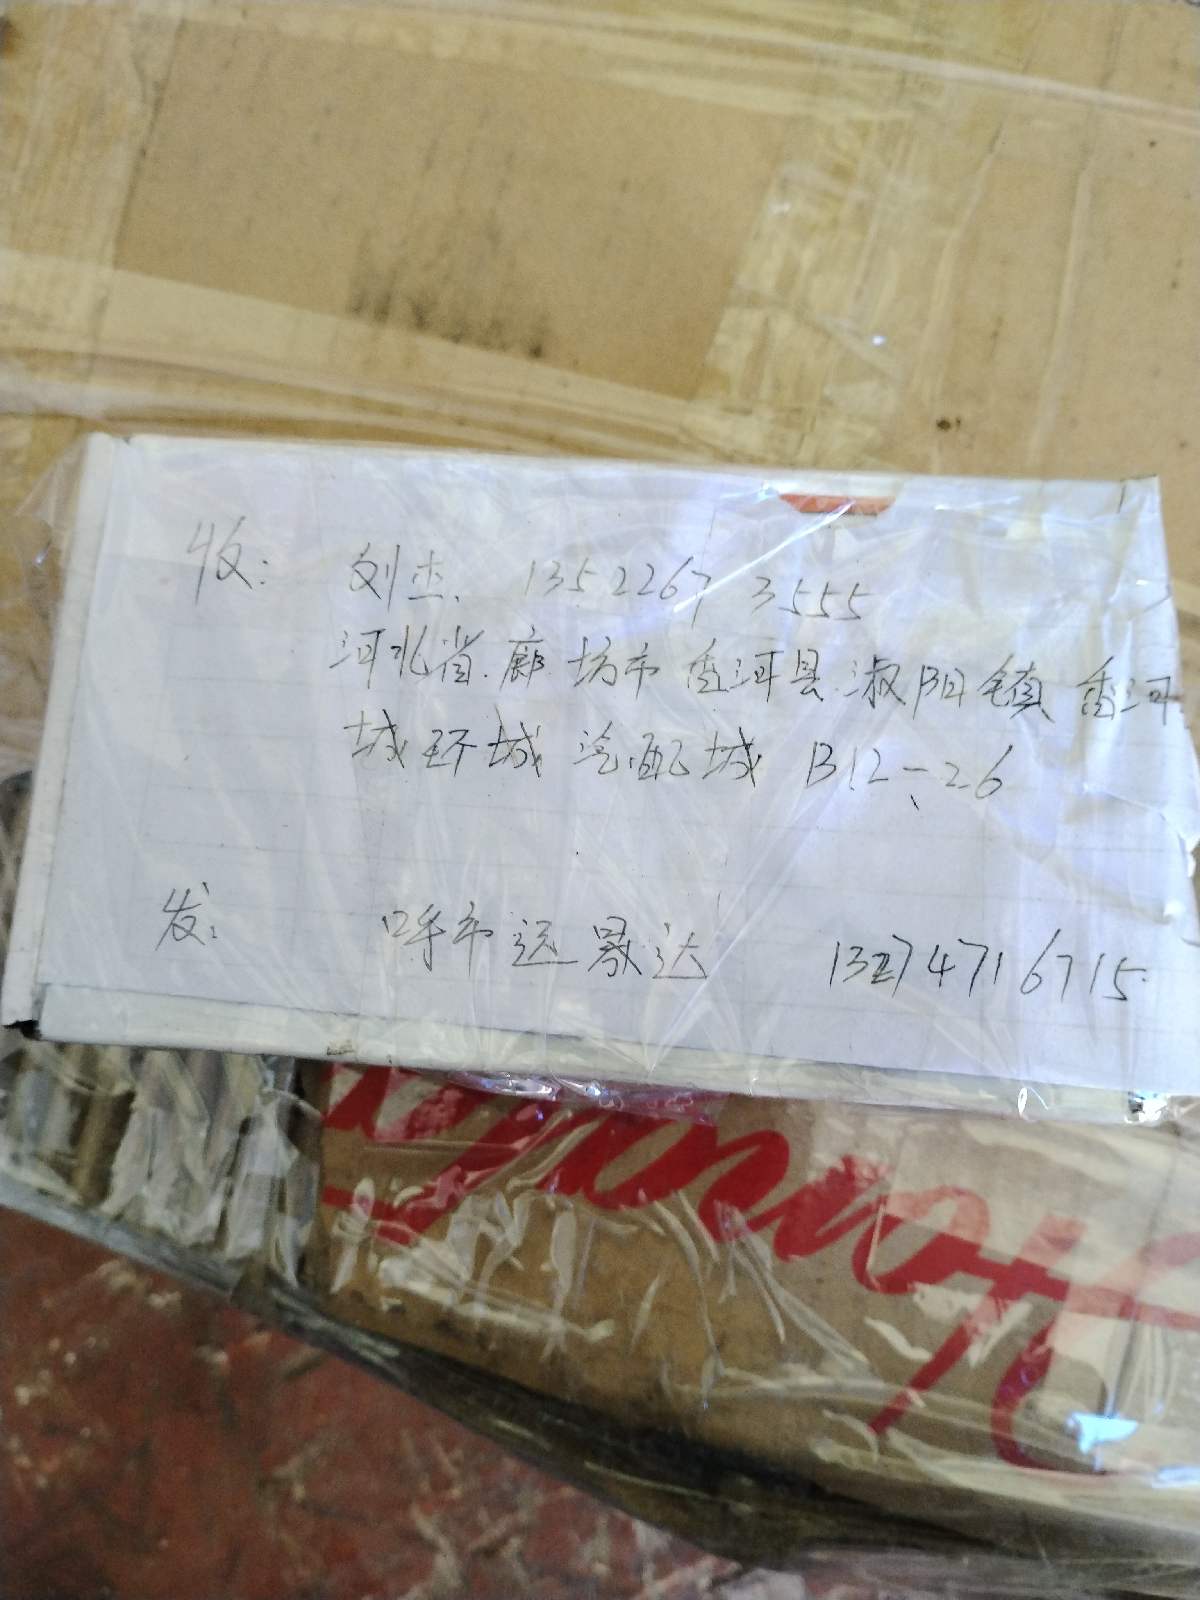 收: 刘杰. 13522673555
河北省.廊坊市香河县.淑阳镇香河
城环城汽配城 B12-26
发: 呼市远晟达 13274716715